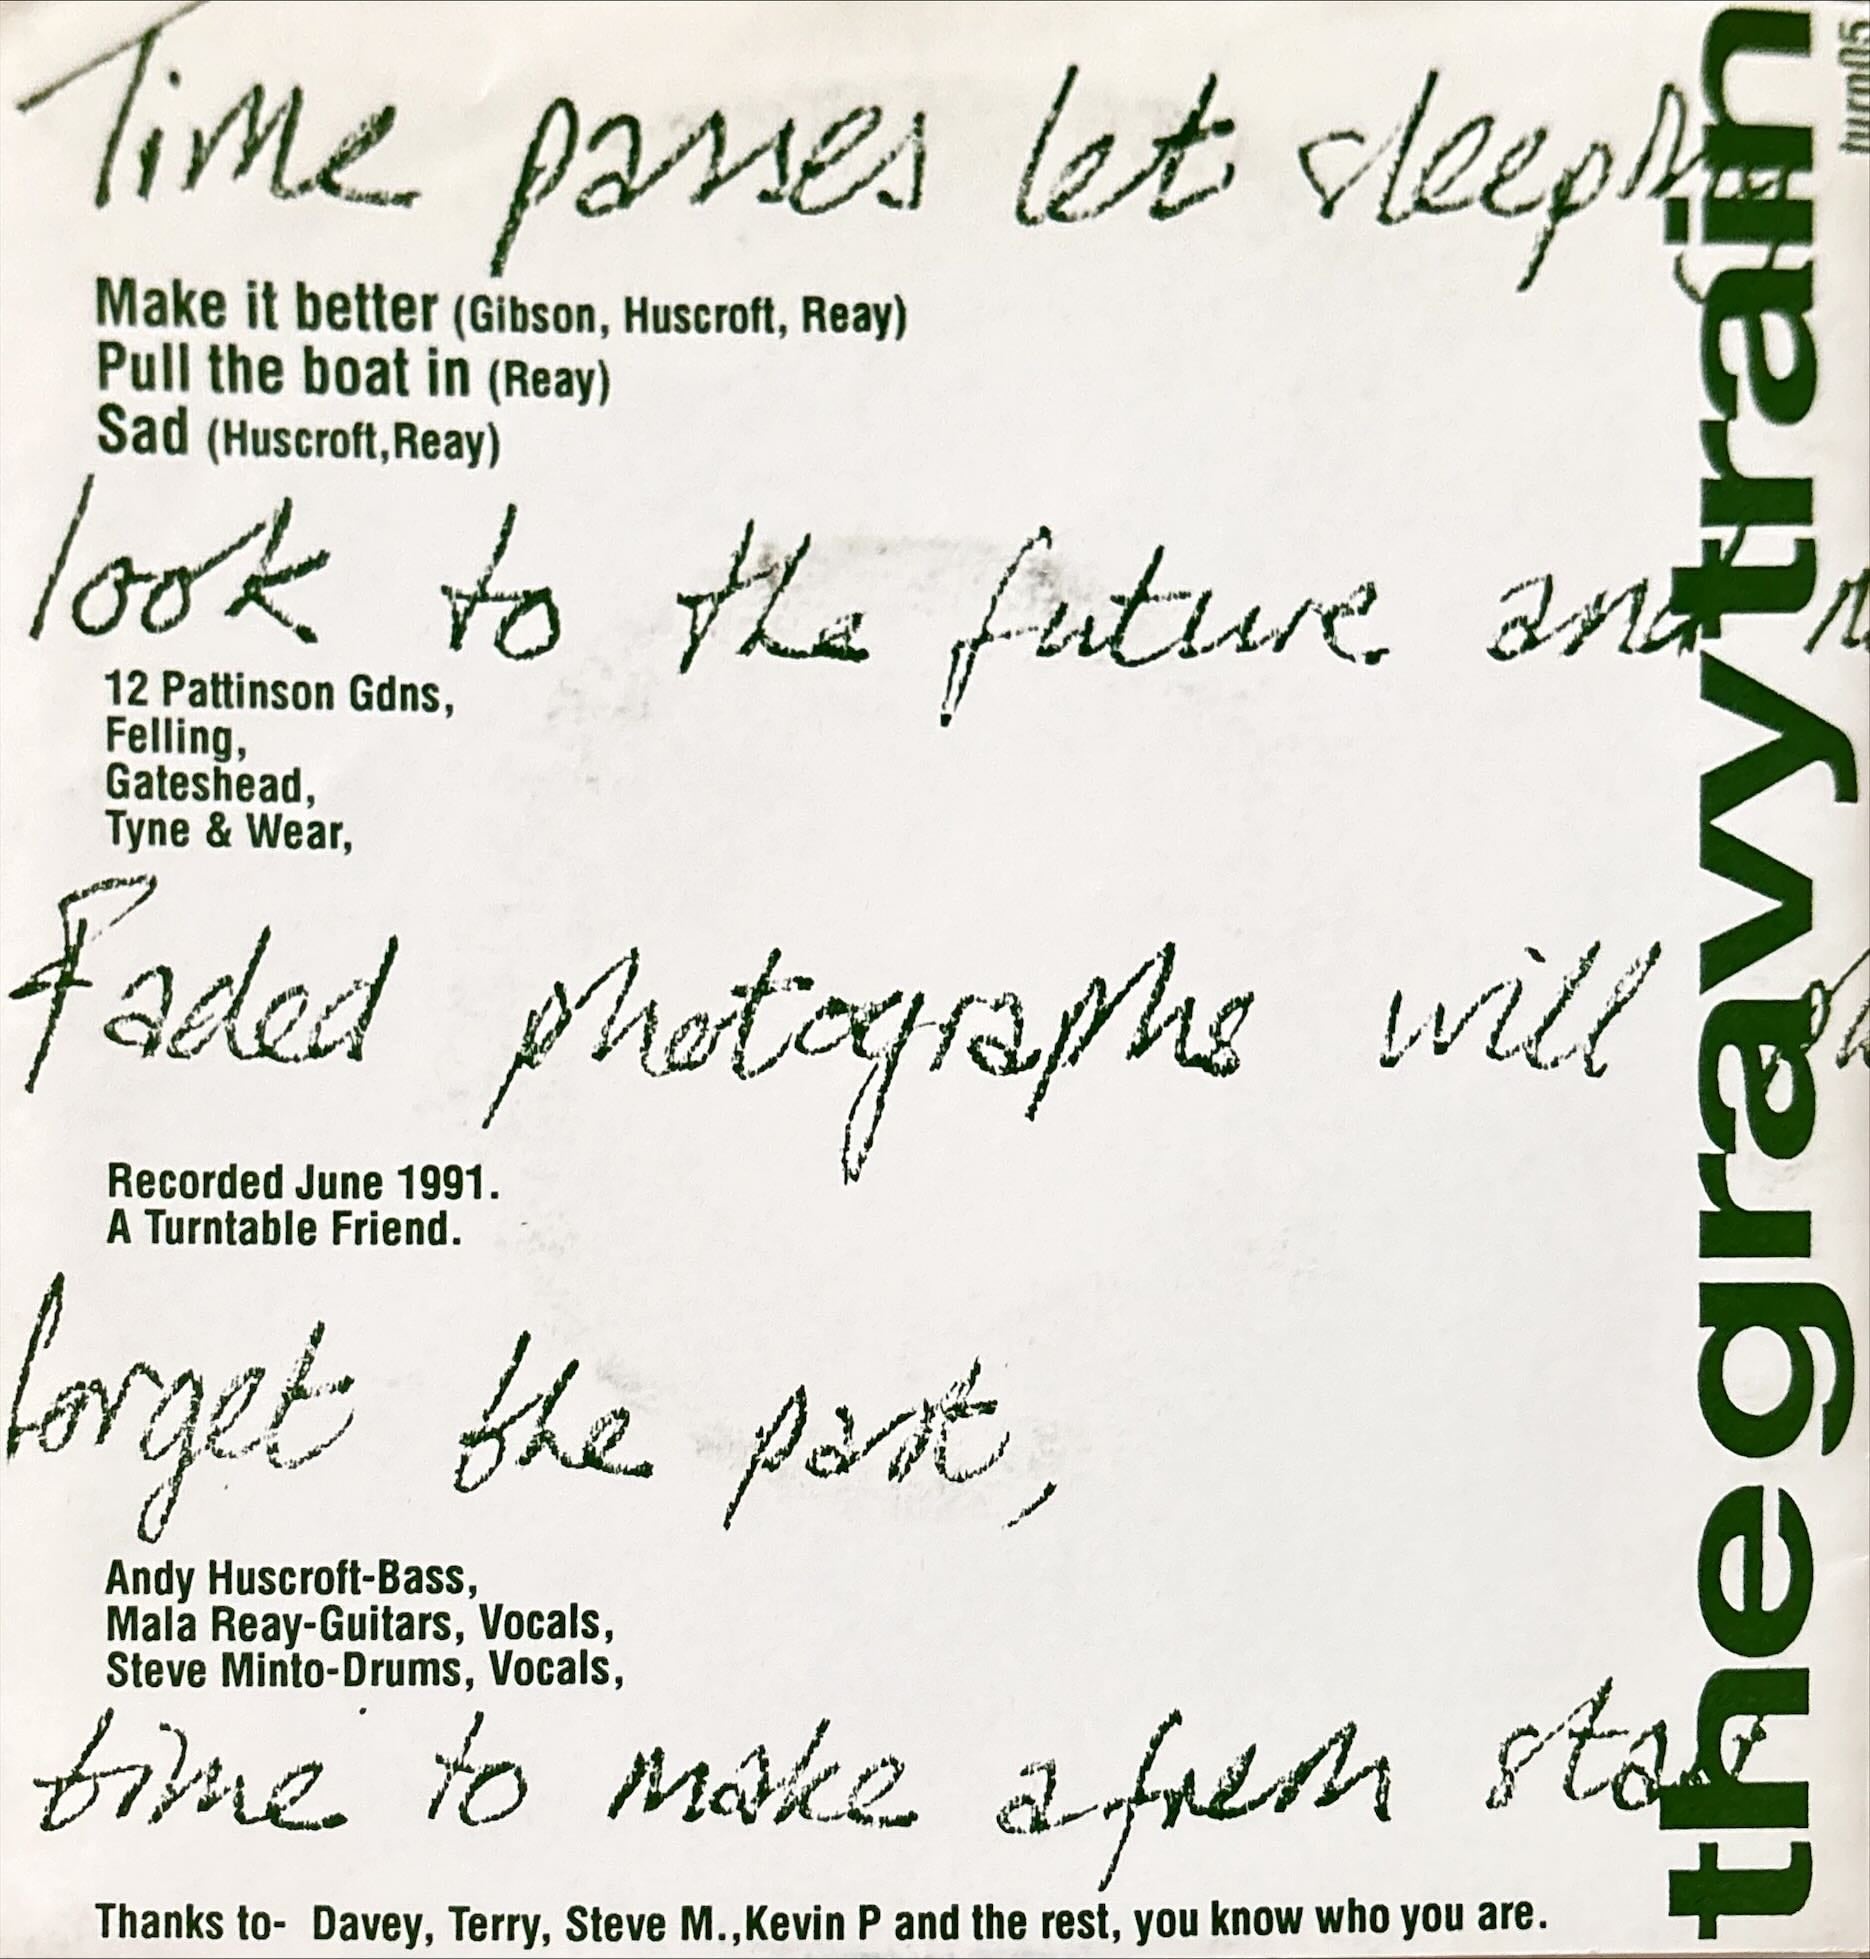 Time passes let
Make it better (Gibson, Huscroft, Reay)
Pull the boat in (Reay)
Sad (Huscroft,Reay)
look to the future and
12 Pattinson Gdns,
Felling,
Gateshead,
Tyne & Wear,
Faded photographs will
Recorded June 1991.
A Turntable Friend.
forget the past,
Andy Huscroft-Bass,
Mala Reay-Guitars, Vocals,
Steve Minto-Drums, Vocals,
time to make a fresh
Thanks to- Davey, Terry, Steve M.,Kevin P and the rest, you know who you are.
the gravy train